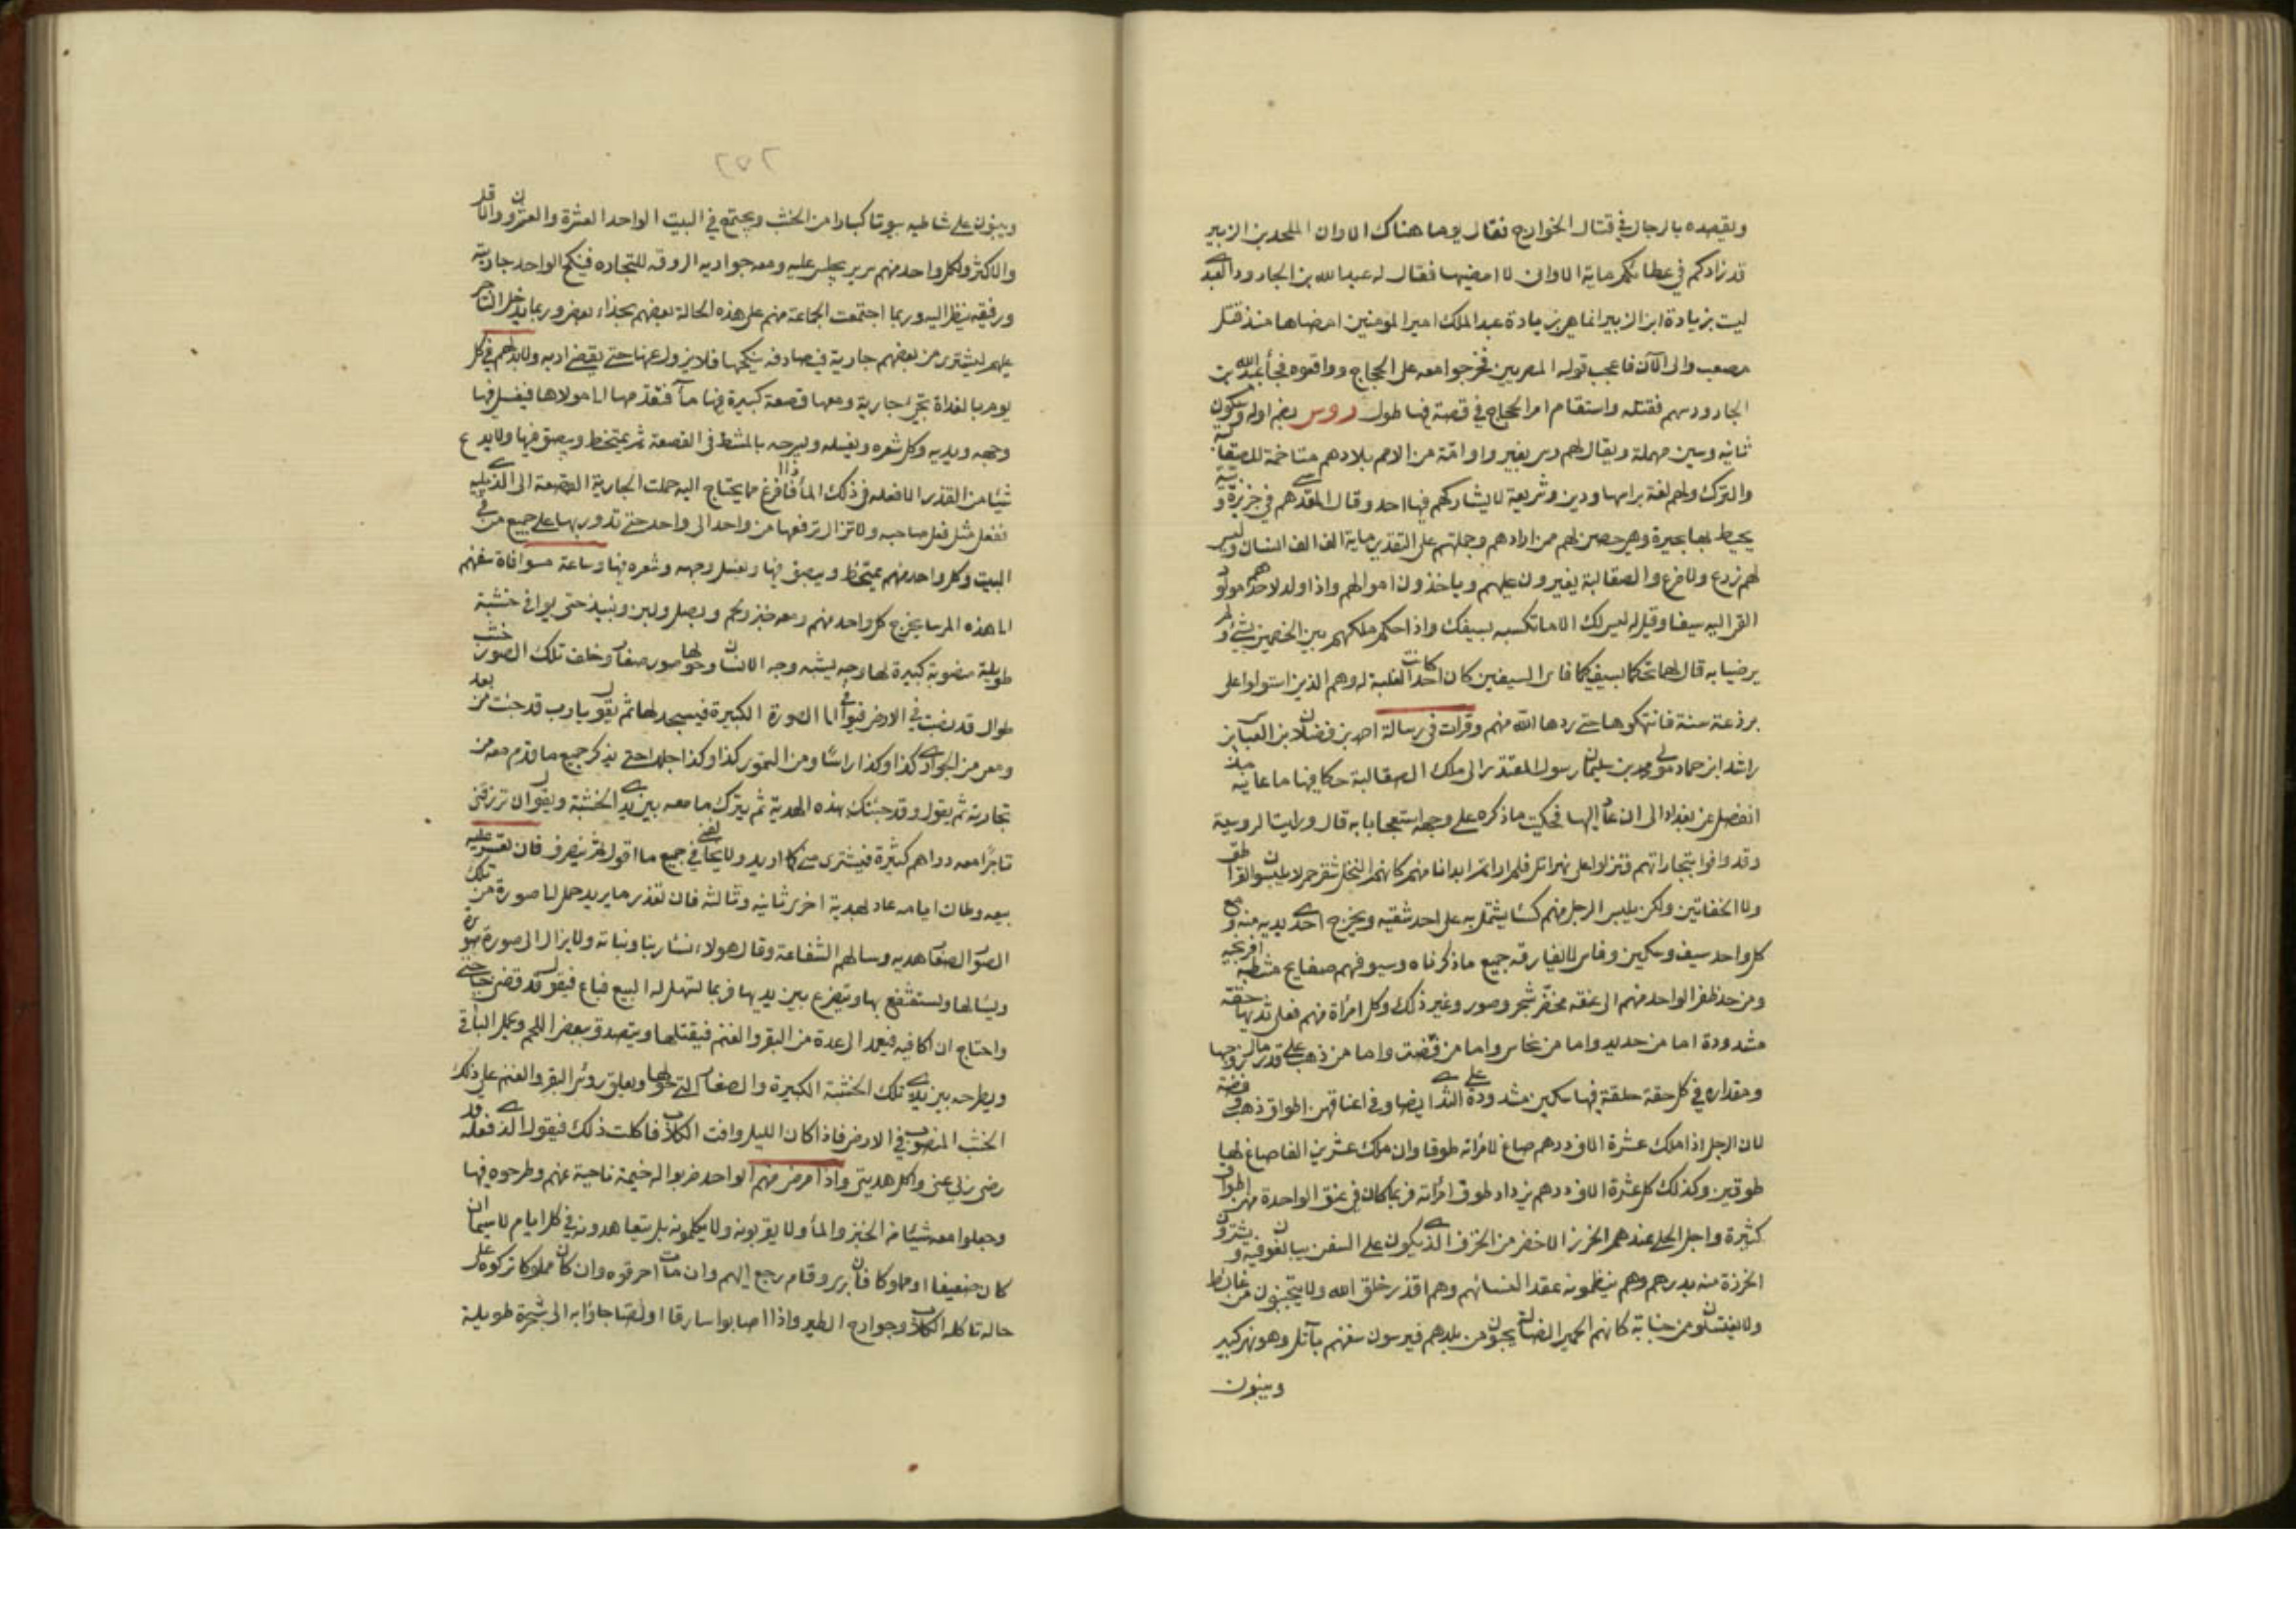 ويقصده بالرجال في قتال الخوارج فقال يوما هناك الا وان الملحد بن الزبير
قد زادكم في عطائكم مايه الا وانى لا امضيها فقال له عبد الله بن الجارود العبدي
ليت بزيادة ابن الزبير انما هي زيادة عبد الملك امير المؤمنين امضاها منذ قتل
مصعب والى الآن فاعجب قوله المصريين فخرجوا معه على الحجاج وواقعوه فجأ عبد الله بن
الجارود سهم فقتله واستقام امر الحجاج في قصة فيها طول روس بضم اوله وسكون
ثانيه وسين مهملة ويقال لهم رس بغير واو امّة من الامم بلادهم متاخمة للصقالبة
والترك ولهم لغة براسها ودين وشريعة لا يشاركهم فيها احد وقال المقدسي هم في جزيرة وبئة
يحيط بها بحيرة وهي حصن لهم ممن ارادهم وجملتهم على التقدير ماية الف الف انسان وليس
لهم زرع ولا ضرع والصقالبة يغيرون عليهم وياخذون اموالهم واذا ولد لاحدهم مولود
القى اليه سيفا وقال له ليس لك الا ما تكسبه بسيفك واذا حكم ملكهم بين الخصمين بشئ ولم
يرضيا به قال لهما تحاكما بسيفيكما فاى السيفين كان احد كانت الغلبة له وهم الذين استولوا على
برذعة سنة فانتهكوها حتى ردها الله منهم وقرات في رسالة احمد بن فضلان بن العباس بن
راشد ابن حماد مولى محمد بن سليمان رسول المقتدر الى ملك الصقالبة حكا فيها ما عاينه منذ
انفصل عن بغداد الى ان عاد اليها فحكيت ما ذكره على وجهه استعجابا به قال ورايت الروسية
وقد وافوا بتجاراتهم فنزلوا على نهر اتل فلم ار اتم ابدانا منهم كانهم النخل شقر حمر لا يلبسون القراطق
ولا الخفاتين ولكن يلبس الرجل منهم كسًا يشتمل به على احد شقيه ويخرج احدى يديه منه ومع
كل واحد سيف وسكين وفاس لا يفارقه جميع ما ذكرناه وسيوفهم صفايح مشطبة افرنجيه
ومن حد ظفر الواحد منهم الى عنقه مخضّر شجر وصور وغير ذلك وكل امرأة منهم فعلى ثديها حقه
مشدودة اما من حديد واما من نحاس واما من فضّة واما من ذهب على قدر مال زوجها
ومقداره في كل حقة حلقة فيها سكين مشدودة على الثدى ايضا وفي اعناقهن اطواق ذهب وفضة
لان الرجل اذا ملك عشرة الاف درهم صاغ لامرأته طوقا وان ملك عشرين الفا صاغ لها
طوقين وكذلك كل عشرة الاف درهم يزداد طوق امرأته فربما كان في عنق الواحدة منهن اطواق
كثيرة واجل الحلى عندهم الخرز الاخضر من الخزف الذي يكون على السفن يبالغون فيه ويشترون
الخرزة منه بدرهم وهم ينظمونه عقدا لنسائهم وهم اقذر خلق الله ولا يتجنبون من غائط
ولا يغتسلون من جنابة كانهم الحمير الضالة يجيون من بلدهم فيرسون سفنهم بآتل وهو نهر كبير
ويبنون
٢٥٢
ويبنون على شاطيه بيوتا كبارا من الخشب ويجتمع في البيت الواحد العشرة والعشرون والاقل
والاكثر ولكل واحد منهم سرير يجلس عليه ومعه جواريه الروقه للتجاره فينكح الواحد جاريته
ورفيقه ينظر اليه وربما اجتمعت الجماعة منهم على هذه الحالة بعضهم بحذاء بعض وربما يدخل التاجر
عليهم ليشترى من بعضهم جارية فيصادفه ينكحها فلا يزول عنها حتى يقضى اربه ولا بد لهم في كل
يوم بالغداة تجى جارية ومعها قصعة كبيرة فيها مآ فتقدمها الى مولاها فيغسل فيها
وجهه ويديه وكل شعره ويغسله ويسرحه بالمشط فى القصعة ثم يمتخط ويبصق فيها ولا يدع
شيئا من القذر الا فعله في ذلك المأ فاذا فرغ مما يحتاج اليه حملت الجارية القصعة الى الذى يليه
ففعل مثل فعل صاحبه ولا تزال ترفعها من واحد الى واحد حتى تدور بها على جميع من في
البيت وكل واحد منهم يمتخط ويبصق فيها ويغسل وجهه وشعره فيها وساعة موافاة سفنهم
الى هذه المرسا يخرج كل واحد منهم ومعه خبز ولحم وبصل ولبن ونبيذ حتى يوافى خشبة
طويلة منصوبة كبيرة لها وجه يشبه وجه الانسان وحولها صور صغار وخلف تلك الصور خشب
طوال قد نصبت في الارض فيوافي الى الصورة الكبيرة فيسجد لها ثم يقول يارب قد جئت من بعد
ومعى من الجوارى كذا وكذا راسًا ومن السمور كذا وكذا جلدا حتى يذكر جميع ما قدم معه من
تجارته ثم يقول وقد جئتك بهذه الهدية ثم يترك ما معه بين يدى الخشبة ويقول ان ترزقنى
تاجرًا معه دراهم كثيرة فيشترى منى كلما اريد ولا يخالفنى في جميع ما اقول ثم ينصرف فان تعسر عليه
بيعه وطالت ايامه عاد لهدية اخرى ثانيه وثالثه فان تعذر ما يريد حمل الى صورة من تلك
الصور الصغار هديه وسالهم الشفاعة وقال هولاء نساء ربنا وبناته ولا يزال الى صورة صورة
ويسالها ويستشفع بها ويتضرع بين يديها فربما تسهل له البيع فباع فيقول قد قضى ربى حاجتى
واحتاج ان اكافيه فيعمد الى عدة من البقر والغنم فيقتلها ويتصدق ببعض اللحم ويحمل الباقي
ويطرحه بين يدى تلك الخشبة الكبيرة والصغار التى حولها ويعلق رؤس البقر والغنم على ذلك
الخشب المنصوب في الارض فاذا كان الليل وافت الكلاب فاكلت ذلك فيقول الذى فعله قد
رضى ربى عنى واكل هديتى واذا مرض منهم الواحد ضربوا له خيمة ناحية عنهم وطرحوه فيها
وجعلوا معه شيئا من الخبز والمأ ولا يقربونه ولا يكلمونه بل يتعاهدونه في كل ايام لا سيما ان
كان ضعيفا او مملوكا فان برى وقام رجع اليهم وان مات احرقوه وان كان مملوكا تركوه على
حاله تاكله الكلاب وجوارح الطير واذا اصابوا سارقا او لصًا جاؤا به الى شجرة طويلة